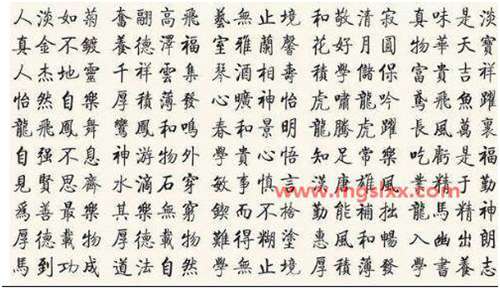 人淡如菊 奮翮高飛 藝無止境 和敬清寂 真味是淡
真金不鍍 養德澤福 室雅蘭馨 花好月圓 物華天寶
人杰地靈 千祥雲集 琴 心 壽 學儲 富貴吉祥
怡然自樂 厚積薄發 曠神怡 虎嘯龍吟 鳶飛魚躍
龍飛鳳舞 鸞鳳和鳴 春和景明 龍騰虎躍 長風萬裏
自强不息 神游物外 學貴心悟 知足常樂 吃虧是福
見賢思齊 水滴石穿 敏事慎言 漢唐雄風 業精于勤
爲善最樂 其樂無窮 鍥而不捨 勤能補拙 龍馬精神
厚德載物 厚德載物 難得糊塗 惠風和暢 入幽出朗
馬到功成 道法自然 學無止境 厚積薄發 學書養志
www.mgslxx.com